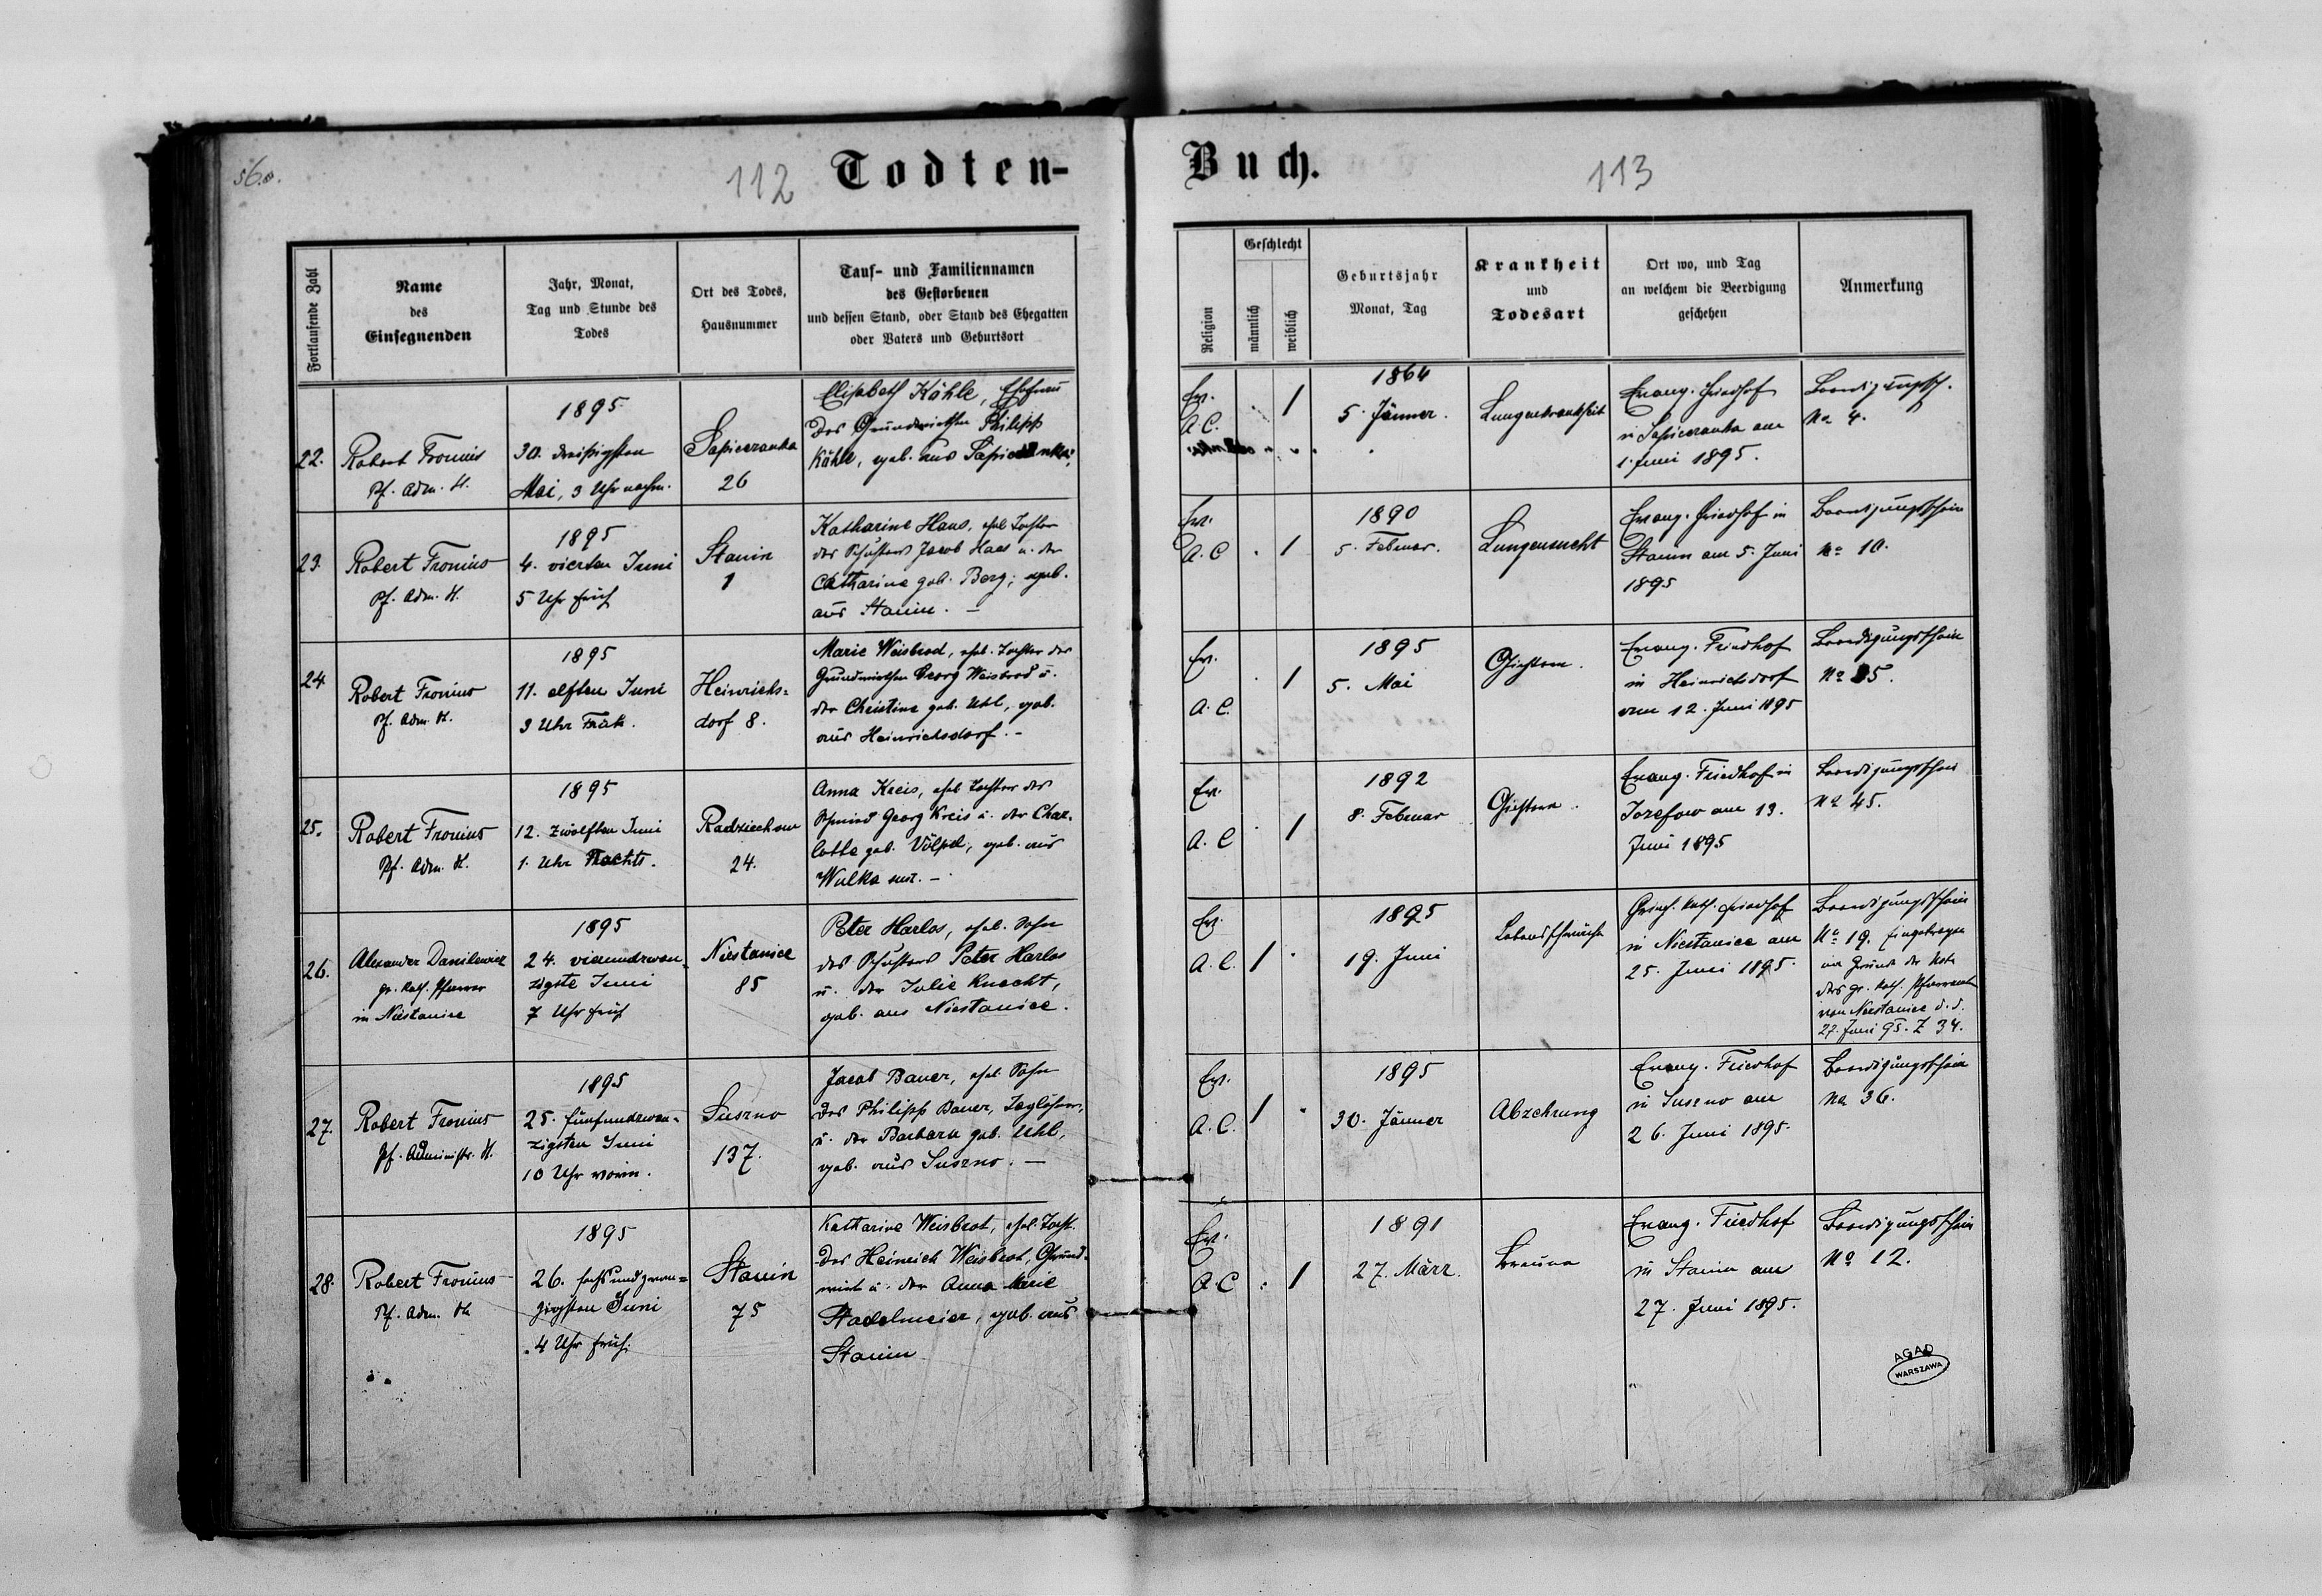 56.
112
Todten-
Fortlaufende Zahl
Name
des
Einsegnenden
Jahr, Monat,
Tag und Stunde des
Todes
Ort des Todes,
Hausnummer
Tauf- und Familiennamen
des Gestorbenen
und dessen Stand, oder Stand des Ehegatten
oder Vaters und Geburtsort
22.
Robert Fronius
Pf. Adm. H.
1895
30. dreißigsten
Mai, 3 Uhr nachm.
Sapiezanka
26
Elisabeth Köhle, Ehefrau
des Grundwirthen Philipp
Köhle, geb. aus Sapiezanka.
23.
Robert Fronius
Pf. Adm. H.
1895
4. vierten Juni
5 Uhr früh
Stanin
1
Katharine Haas, ehel. Tochter
des Schusters Jacob Haas u. der
Catharine geb. Berg; geb.
aus Stanin. —
24
Robert Fronius
Pf. Adm. H.
1895
11. elften Juni
3 Uhr Früh.
Heinrichs=
dorf 8.
Marie Weisbrod, ehel. Tochter des
Grundwirthen Georg Weisbrod u.
der Christine geb. Uhl, geb.
aus Heinrichsdorf. -
25.
Robert Fronius
Pf. Adm. H.
1895
12. zwölften Juni
1. Uhr Nachts.
Radziechow
24.
Anna Kreis, ehel. Tochter des
Schmied Georg Kreis u. der Char-
lotte geb. Völpel, geb. aus
Wulka susz. —
26.
Alexander Danilewicz
gr. kath. Pfarrer
in Niestanice
1895
24. vierundzwan-
zigste Juni
7 Uhr früh
Niestanice
85
Peter Harlos, ehel. Sohn
des Schusters Peter Harlos
u. der Julie Knecht,
geb. aus Niestanice.
27.
Robert Fronius
Pf. Administr. H.
1895
25. fünfundzwan-
zigsten Juni
10 Uhr vorm.
Suszno
137.
Jacob Bauer, ehel. Sohn
des Philipp Bauer, Taglöhner,
u. der Barbara geb. Uhl,
geb. aus Suszno. —
28.
Robert Fronius
Pf. Adm. H.
1895
26. sechsundzwan=
zigsten Juni
4 Uhr früh.
Stanin
75
Katharine Weisbrot, ehel. Tocht.
des Heinrich Weisbrot, Grund-
wirt u. der Anna Marie
Stadelmeier, geb. aus
Stanin
Buch.
113
Religion
Geschlecht
männlich
weiblich
Geburtsjahr
Monat, Tag
Krankheit
und
Todesart
Ort wo, und Tag
an welchem die Beerdigung
geschehen
Anmerkung
Ev.
A. C.
1
1864
5. Jänner.
Lungenkrankheit
Evang. Friedhof
in Sapiezanka am
1. Juni 1895.
Beerdigungssch.
No 4.
Ev.
A. C
1
1890
5. Februar.
Lungensucht
Evang. Friedhof in
Stanin am 5. Juni
1895
Beerdigungsschein
No 10.
Ev.
A. C.
1
1895
5. Mai
Gichtern.
Evang. Friedhof
in Heinrichsdorf
am 12. Juni 1895
Beerdigungsschein
No 35.
Ev.
A. C
1
1892
8. Februar
Gichtern.
Evang. Friedhof in
Jozefow am 13.
Juni 1895
Beerdigungsschein
No 45.
Ev.
A. C.
1
1895
19. Juni
Lebensschwäche
Griech. kath. Friedhof
in Niestanice am
25. Juni 1895.
Beerdigungsschein
No 19. Eingetragen
im Grunde der Note
des gr. kath. Pfarramtes
von Niestanice d. d.
27. Juni 95. Z 34.
Ev.
A. C.
1
1895
30. Jänner
Abzehrung
Evang. Friedhof
in Suszno am
26. Juni 1895.
Beerdigungsschein
No 36.
Ev.
A. C
1
1891
27. März.
Bräune
Evang. Friedhof
in Stanin am
27. Juni 1895.
Beerdigungsschein
No 12.
AGAD
WARSZAWA